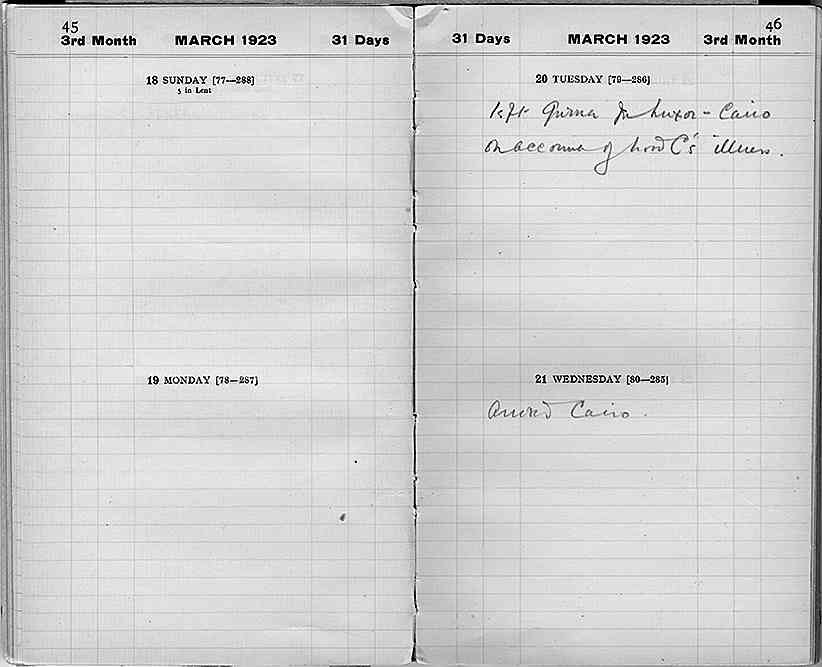 45
3rd Month MARCH 1923 31 Days
18 SUNDAY [77—288]
5 in Lent
19 MONDAY [78—287]
46
31 Days MARCH 1923 3rd Month
20 TUESDAY [79—286]
Left Gurna for Luxor - Cairo
on account of Lord C's illness.
21 WEDNESDAY [80—285]
Arrived Cairo.